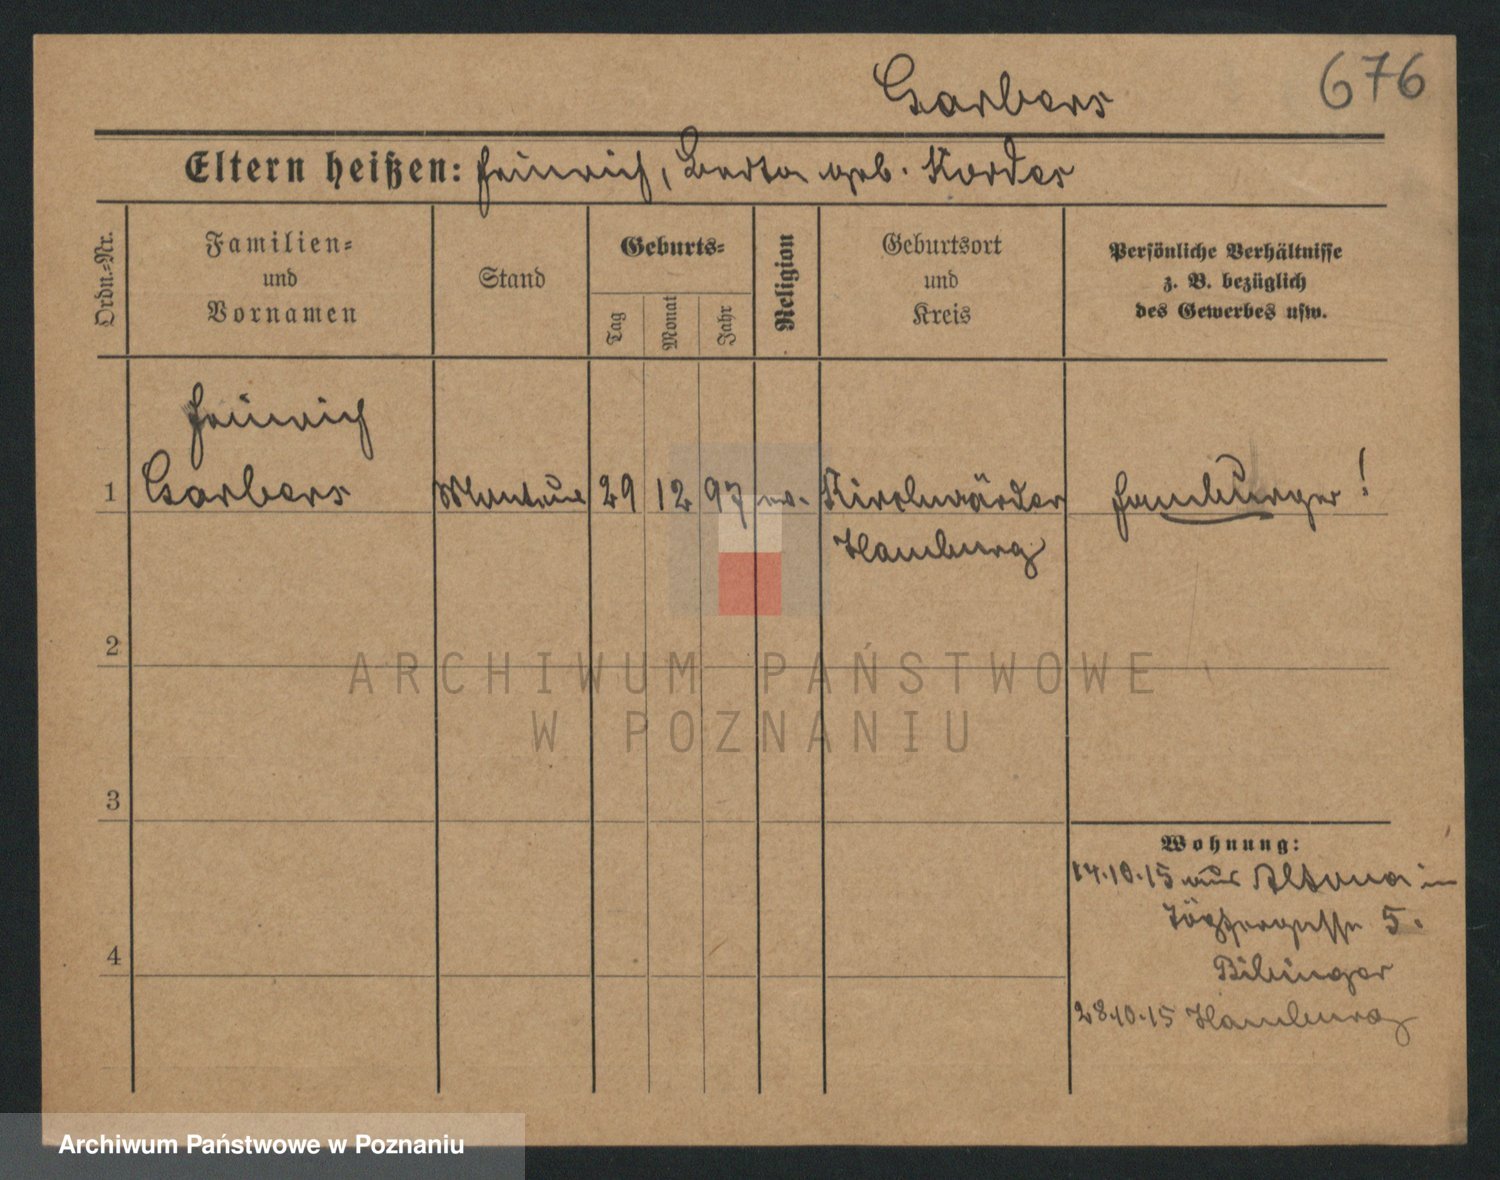 Garbers
676
Eltern heißen: Heinrich, Berta geb. Kordes
Ordn.=Nr.
Familien=
und
Vornamen
Stand
Geburts=
Tag
Monat
Jahr
Religion
Geburtsort
und
Kreis
Persönliche Verhältnisse
z. B. bezüglich
des Gewerbes usw.
Heinrich
1 Garbers Monteur 29 12 97 ev. Kirchwärder Hamburger!
Hamburg
2
ARCHIWUM PAŃSTWOWE
W POZNANIU
3
Wohnung:
14.10.15 aus Altona in
5.
4
28.10.15 Hamburg
Archiwum Państwowe w Poznaniu